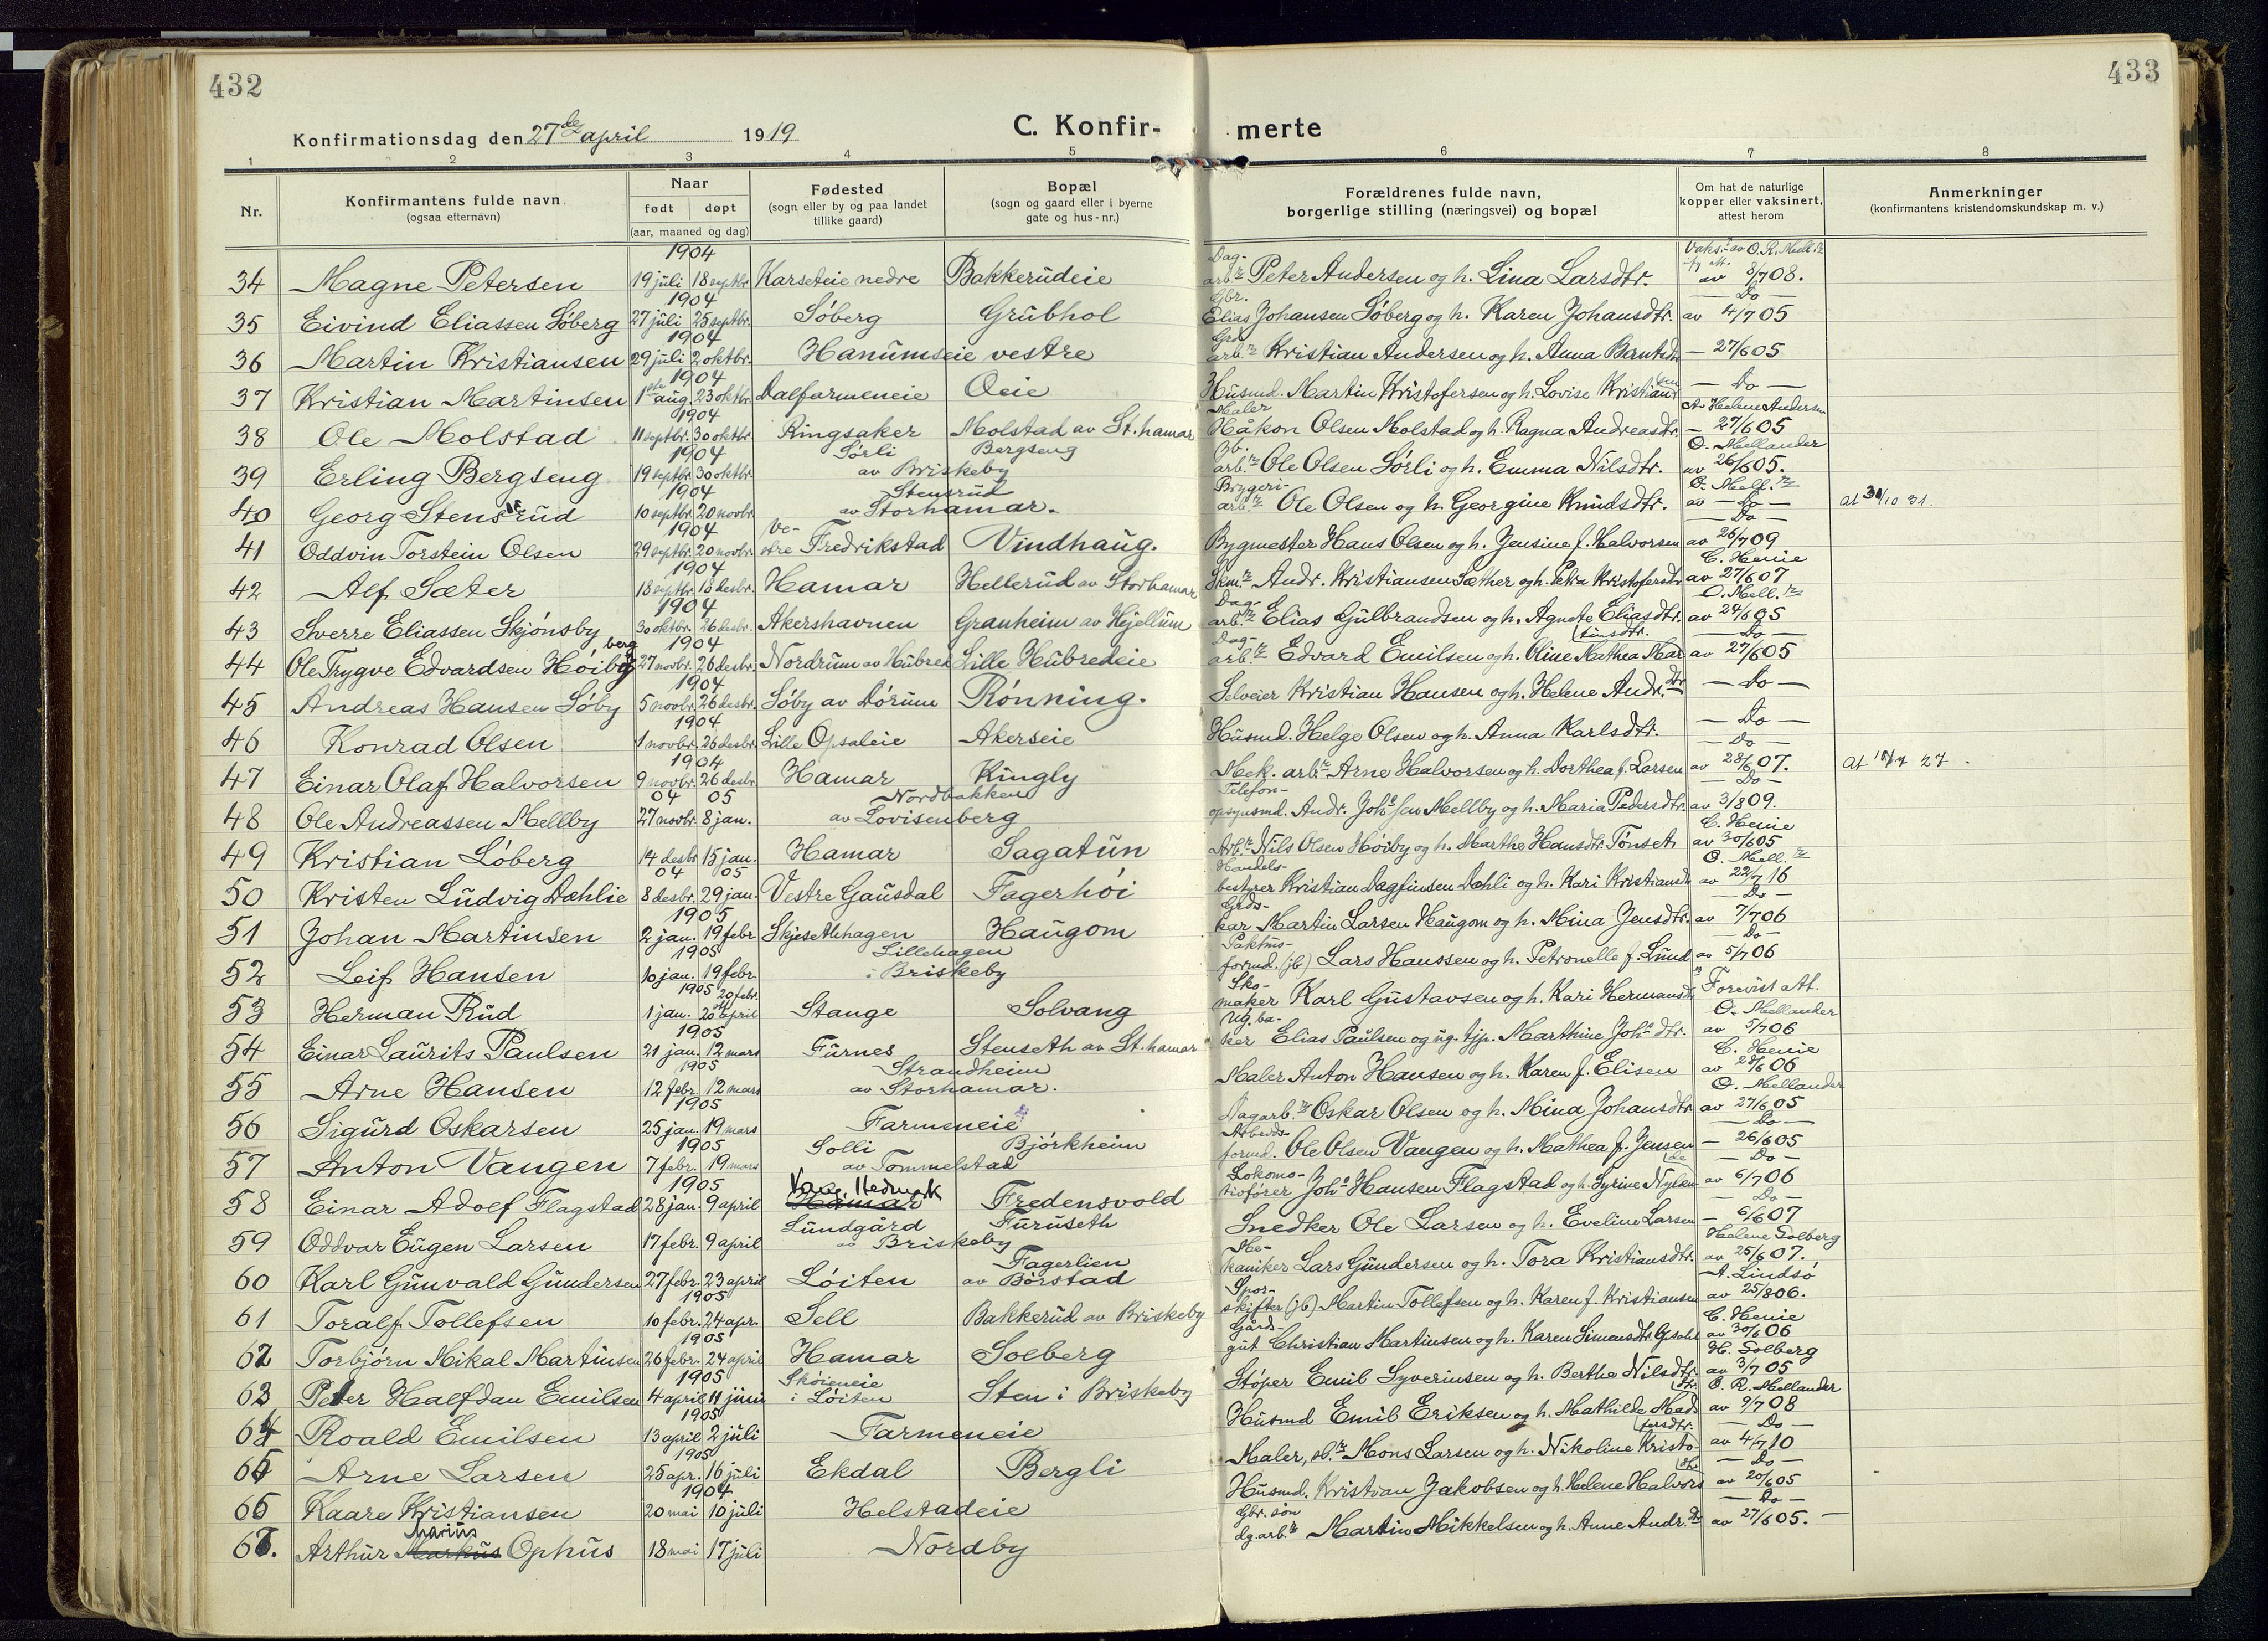 432
433
Konfirmationsdag den 27de april 1919
C. Konfir- merte
1 2 3 4 5 6 7 8
Nr.
Konfirmantens fulde navn
(ogsaa efternavn)
Naar
født døpt
(aar, maaned og dag)
Fødested
(sogn eller by og paa landet
tillike gaard)
Bopæl
(sogn og gaard eller i byerne
gate og hus-nr.)
Forældrenes fulde navn,
borgerlige stilling (næringsvei) og bopæl
Om hat de naturlige
kopper eller vaksinert,
attest herom
Anmerkninger
(konfirmantens kristendomskundskap m. v.)
1904
34 Magne Petersen 19 juli 18 septbr. Karseteie nedre Bakkerudeie Dag-arb.r Peter Andersen og h. Lina Larsdtr. av 8/7 08.
1904
35 Eivind Eliassen Søberg 27 juli 25 septbr. Søberg Grubhol Gbr. Elias Johansen Søberg og h. Karen Johansdtr. Do av 4/7 05
1904
36 Martin Kristiansen 29 juli 2 oktbr. Hanumseie vestre arb.r Kristian Andersen og h. Anna Berntsdtr – 27/6 05
1904
37 Kristian Martinsen 1ste aug. 23 oktbr. Dalfarmeneie Oeie Husmd. Martin Kristofersen og h. Lovise Kristiansen – Do –
1904
38 Ole Molstad 11 septbr. 30 oktbr. Ringsaker Molstad av St.hamar Maler Håkon Olsen Molstad og h. Ragna Andreasdtr. Helene Andersen – 27/6 05
1904
39 Erling Bergseng 19 septbr. 30 oktbr. Sørli Bergseng av Briskeby arb.r Ole Olsen Sørli og h. Emma Nilsdtr. O. Mellander av 26/6 05.
1904
40 Georg Stensrud 10 septbr. 20 novbr. Stensrud av Storhamar. Bryggeri-arb.r Ole Olsen og h. Georgine Knudsdtr. O. Mell.r av – Do – at 31/10 31.
1904
41 Oddvin Torstein Olsen 29 septbr. 20 novbr. Ve-stre Fredrikstad Vindhaug. Bygmester Hans Olsen og h. Jensine f. Halvorsen – Do – av 26/7 09
1904
42 Alf Sæter 18 septbr. 18 desbr. Hamar Hellerud av Storhamar Skm.r Andr. Kristiansen Sæther og h. Petra Kristofersdtr C. Henie av 27/6 07
1904
43 Sverre Eliassen Skjønsby 30 oktbr. 26 desbr. Akershavnen Granheim av Hjellum Dag-arb.r Elias Gulbrandsen og h. Agnete Eliasdtr. O. Mell.r av 24/6 05
1904
44 Ole Trygve Edvardsen Høiberg 27 novbr. 26 desbr. Nordrum av Hubred Lille Hubredeie Dag-arb.r Edvard Emilsen og h. Oline Mathea Martinsdtr. – Do – av 27/6 05
1904
45 Andreas Hansen Søby 5 novbr. 26 desbr. Søby av Dørum Rønning. Selveier Kristian Hansen og h. Helene Andr.dtr – Do –
1904
46 Konrad Olsen 1 novbr. 26 desbr. Lille Opsaleie Akerseie Husmd. Helge Olsen og h. Anna Karlsdtr. – Do –
1904
47 Einar Olaf Halvorsen 9 novbr. 26 desbr. Hamar Kingly Mek. arb.r Arne Halvorsen og h. Dorthea f. Larsen – Do – av 28/6 07.
04 05
48 Ole Andreassen Mellby 27 novbr. 8 jan. Nordbakken av Lovisenberg Telefon-opsynsmd. Andr. Joh.sen Mellby og h. Maria Pedersdtr. – Do – av 3/8 09.
49 Kristian Løberg 14 desbr 15 jan. Hamar Sagatun Arb.r Nils Olsen Høiby og h. Marthe Hansdtr. Tønset C. Henie av 30/6 05
04 05
50 Kristen Ludvig Dæhlie 8 desbr. 29 jan. Vestre Gausdal Fagerhøi Handels-bestyrer Kristian Dagfinsen Dæhli og h. Kari Kristiansdtr O. Mell.r av 22/7 16
1905
51 Johan Martinsen 2 jan. 19 febr Skjesethhagen Haugom kar Martin Larsen Haugom og h. Mina Jensdtr. – Do – av 7/7 06
1905
52 Leif Hansen 10 jan. 19 febr. Lillehagen i Briskeby Pakhus-formd. (jb.) Lars Hanssen og h. Petronelle f. Lund – Do – av 5/7 06
1905
53 Herman Rud 1 jan. 20 febr. 20 april Stange Solvang Sko-maker Karl Gustavsen og h. Kari Hermansdtr Forevist att.
1905
54 Einar Laurits Paulsen 21 jan. 12 mars Furnes Stenseth av St.hamar Ug. ba-ker Elias Paulsen og ug. tjp. Marthine Joh.dtr. O. Mellander av 5/7 06
1905
55 Arne Hansen 12 febr. 12 mars Strandheim av Storhamar. Maler Anton Hansen og h. Karen f. Elisen C. Henie av 28/6 06
1905
56 Sigurd Oskarsen 25 jan. 19 mars Farmeneie Dagarb.r Oskar Olsen og h. Mina Johansdtr O. Mellander av 27/6 05
1905
57 Anton Vangen 7 febr. 19 mars Solli Bjørkheim av Tommelstad Arbeids-formd. Ole Olsen Vangen og h. Mathea f. Jensen – Do – 26/6 05
1905
58 Einar Adolf Flagstad 28 jan. 9 april Hamar Vang, Hedmark Fredensvold Lokomo-tivfører Joh. Hansen Flagstad og h. Syrine Nylænde – Do – av 6/7 06
59 Oddvar Eugen Larsen 17 febr. 9 april Lundgård Furuseth av Briskeby Snedker Ole Larsen og h. Eveline Larsen – Do – 6/6 07
60 Karl Gunvald Gundersen 27 febr. 23 april Løiten Fagerlien av Børstad Me-kaniker Lars Gundersen og h. Tora Kristiansdtr. Helene Solberg av 25/6 07.
1905
61 Toralf Tollefsen 10 febr. 24 apr. Sell Bakkerud av Briskeby Spor-skifter (jb) Martin Tollefsen og h. Karen f. Kristiansen A. Lindsø av 25/8 06.
1905
62 Torbjørn Mikal Martinsen 26 febr. 24 april Hamar Solberg Gårds-gut Christian Martinsen og h. Karen Simensdtr. Opsahl C. Henie av 30/6 06
1905
63 Peter Halfdan Emilsen 4 april 11 juni Skøieneie i Løiten Sten i Briskeby Støper Emil Syverinsen og h. Berthe Nilsdtr. H. Solberg av 3/7 05
1905
64 Roald Emilsen 13 april 2 juli Farmeneie Husmd Emil Eriksen og h. Mathilde Mads dtr. O. R. Mellander av 9/7 08
1905
65 Arne Larsen 25 apr. 16 juli Ekdal Bergli Maler, Mons Larsen og h. Nikoline Kristofersdtr. – Do – av 4/7 10
1904
66 Kaare Kristiansen 20 mai 10 juli Helstadeie Husmd. Kristian Jakobsen og h. Helene Halvorsdtr – Do – av 20/6 05
67. Arthur Markus Marius Ophus 18 mai 17 juli Nordby Gbr. søn dgarb.r Martin Mikkelsen og h. Anne Andr.dtr – Do – av 27/6 05.